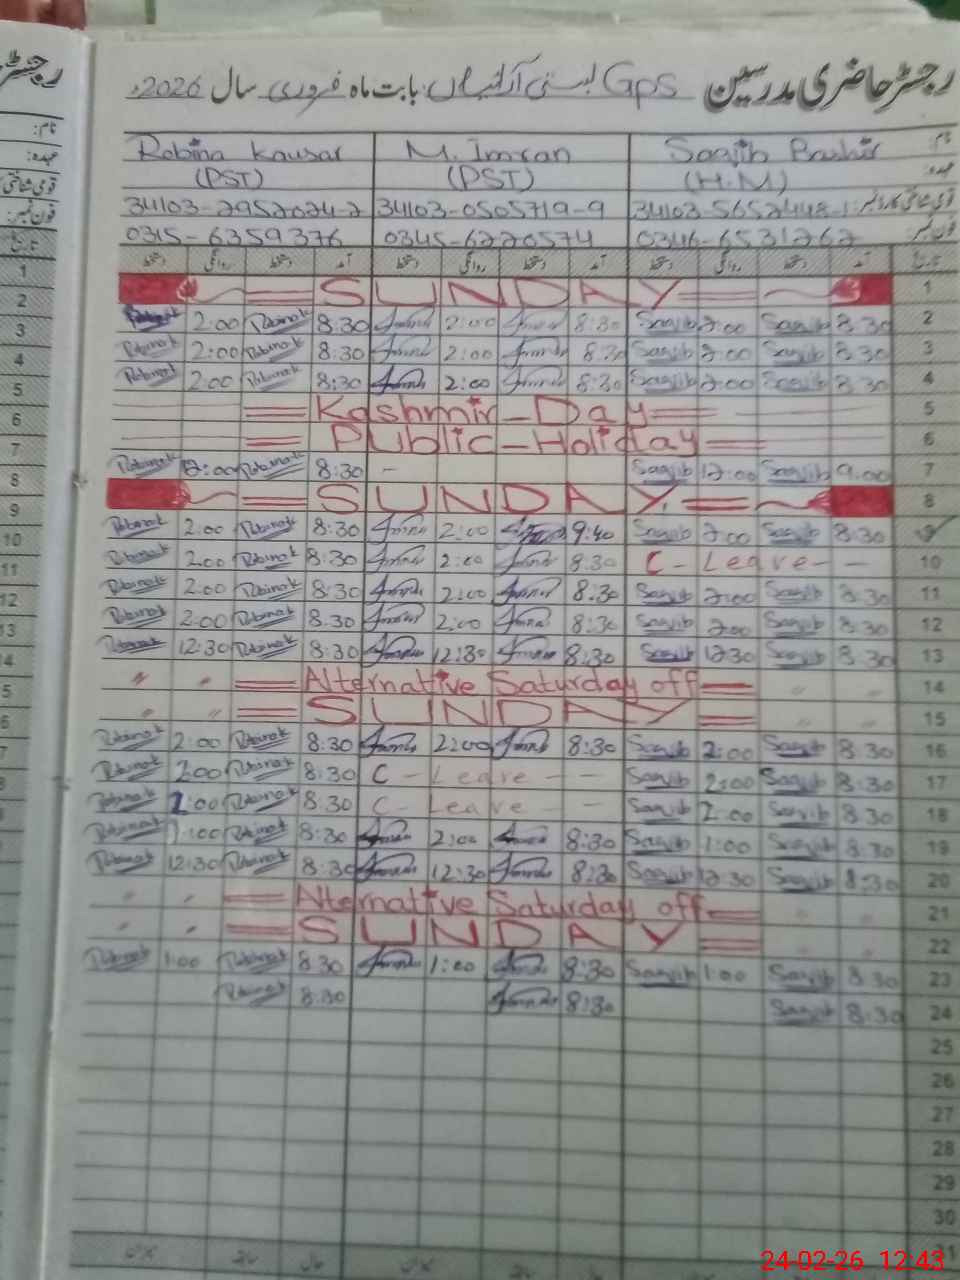 رجسٹر حاضری مدرسین Gps بستی آرائیاں بابت ماہ فروری سال 2026ء
نام:
Robina Kausar M. Imran Saqib Bashir
عہدہ:
(PST) (PST) (H.M)
34103-2952024-2 34103-0505719-9 34103-5652448-1
فون نمبر:
0315-6359376 0345-6220574 0346-6531262
دستخط روانگی دستخط آمد دستخط روانگی دستخط آمد دستخط روانگی دستخط آمد تاریخ
1 = SUNDAY = 1
2 Robinak 2:00 Robinak 8:30 Imran 2:00 Imran 8:30 Saqib 2:00 Saqib 8:30 2
3 Robinak 2:00 Robinak 8:30 Imran 2:00 Imran 8:30 Saqib 2:00 Saqib 8:30 3
4 Robinak 2:00 Robinak 8:30 Imran 2:00 Imran 8:30 Saqib 2:00 Saqib 8:30 4
5 = Kashmir - Day = 5
6 = Public - Holiday = 6
7 Robinak 12:00 Robinak 8:30 - Saqib 12:00 Saqib 9:00 7
8 = SUNDAY = 8
9 Robinak 2:00 Robinak 8:30 Imran 2:00 Imran 9:40 Saqib 2:00 Saqib 8:30 9
10 Robinak 2:00 Robinak 8:30 Imran 2:00 Imran 8:30 C - Leave - - 10
11 Robinak 2:00 Robinak 8:30 Imran 2:00 Imran 8:30 Saqib 2:00 Saqib 8:30 11
12 Robinak 2:00 Robinak 8:30 Imran 2:00 Imran 8:30 Saqib 2:00 Saqib 8:30 12
13 Robinak 12:30 Robinak 8:30 Imran 12:30 Imran 8:30 Saqib 12:30 Saqib 8:30 13
14 " " = Alternative Saturday off = " " 14
" " = SUNDAY = " " 15
Robinak 2:00 Robinak 8:30 Imran 2:00 Imran 8:30 Saqib 2:00 Saqib 8:30 16
Robinak 2:00 Robinak 8:30 C - Leave - - Saqib 2:00 Saqib 8:30 17
Robinak 1:00 Robinak 8:30 C - Leave - - Saqib 2:00 Saqib 8:30 18
Robinak 1:00 Robinak 8:30 Imran 2:00 Imran 8:30 Saqib 1:00 Saqib 8:30 19
Robinak 12:30 Robinak 8:30 Imran 12:30 Imran 8:30 Saqib 12:30 Saqib 8:30 20
" " = Alternative Saturday off = " " 21
" " = SUNDAY = " 22
Robinak 1:00 Robinak 8:30 Imran 1:00 Imran 8:30 Saqib 1:00 Saqib 8:30 23
Robinak 8:30 Imran 8:30 Saqib 8:30 24
25
26
27
28
29
30
31
24-02-26 12:43